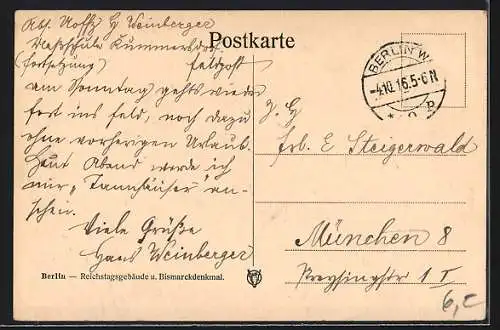 Postkarte
Abs. Uoffz H Weinberger
Kummersdorf
(Fortsetzung) Feldpost
am Sonntag gehts wieder
fort ins Feld, noch dazu
ohne vorherigen Urlaub.
Heut Abend werde ich
mir „Tannhäuser" an-
sehen.
Viele Grüße
Hans Weinberger
Berlin — Reichstagsgebäude u. Bismarckdenkmal.
BERLIN W
-4.10.16.5-6N
Frl. E Steigerwald
München 8
Preysingstr 1 I